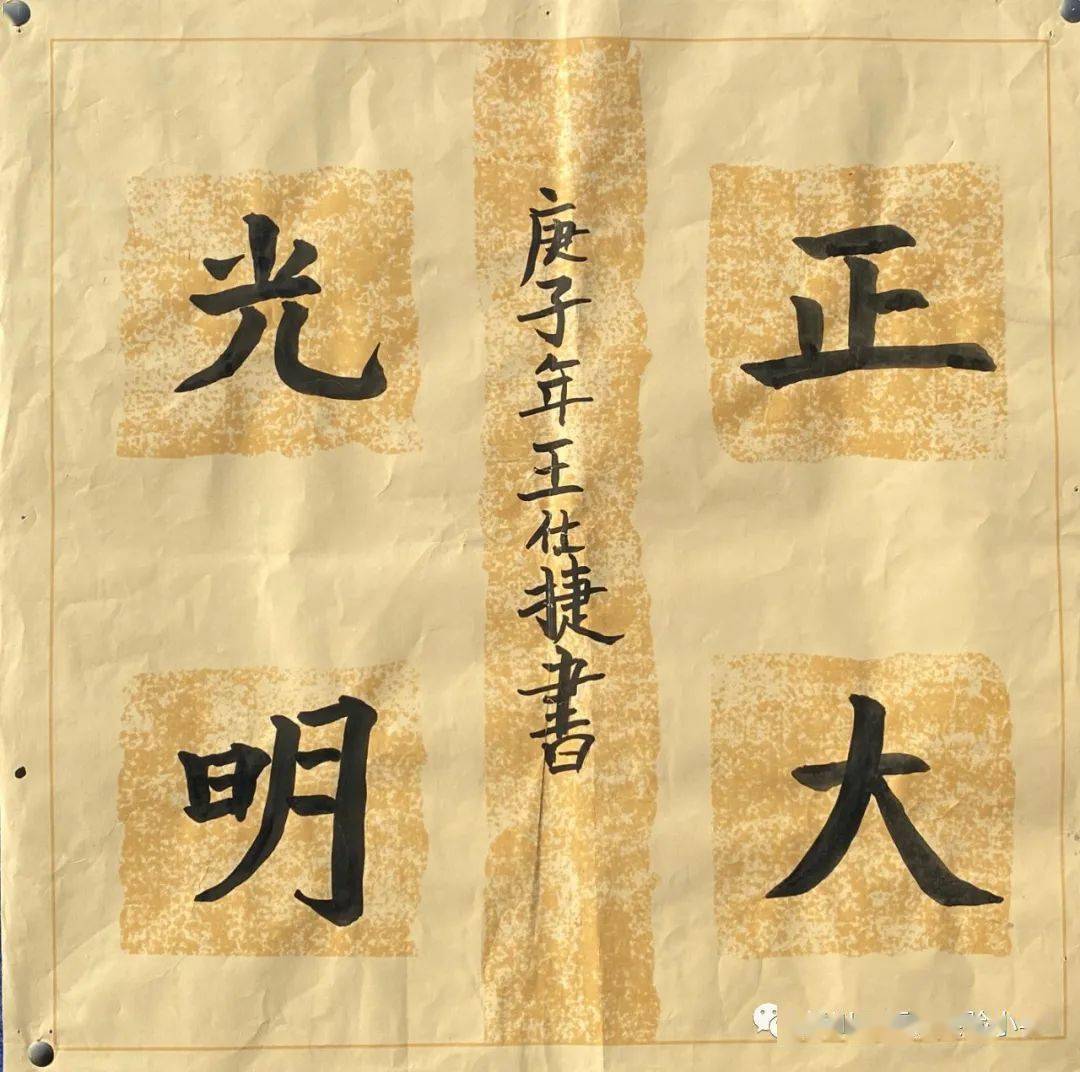 正大
庚子年王仕捷書
光明